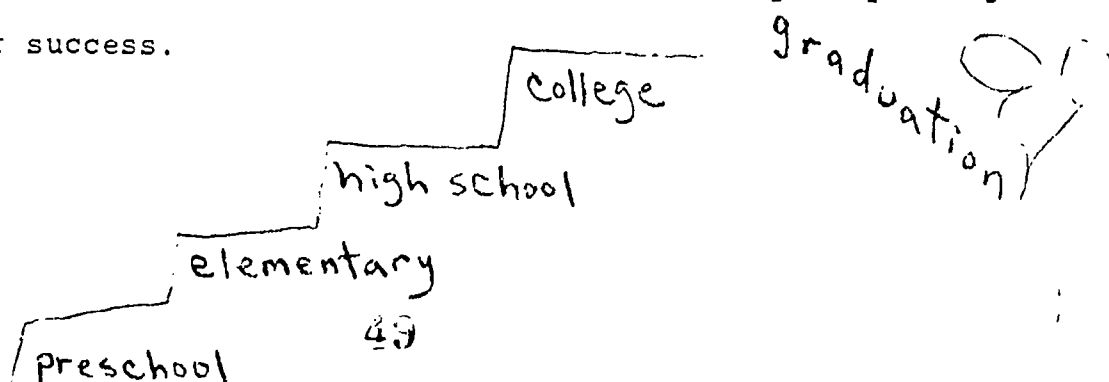 success.
graduation
college
high school
elementary
49
preschool